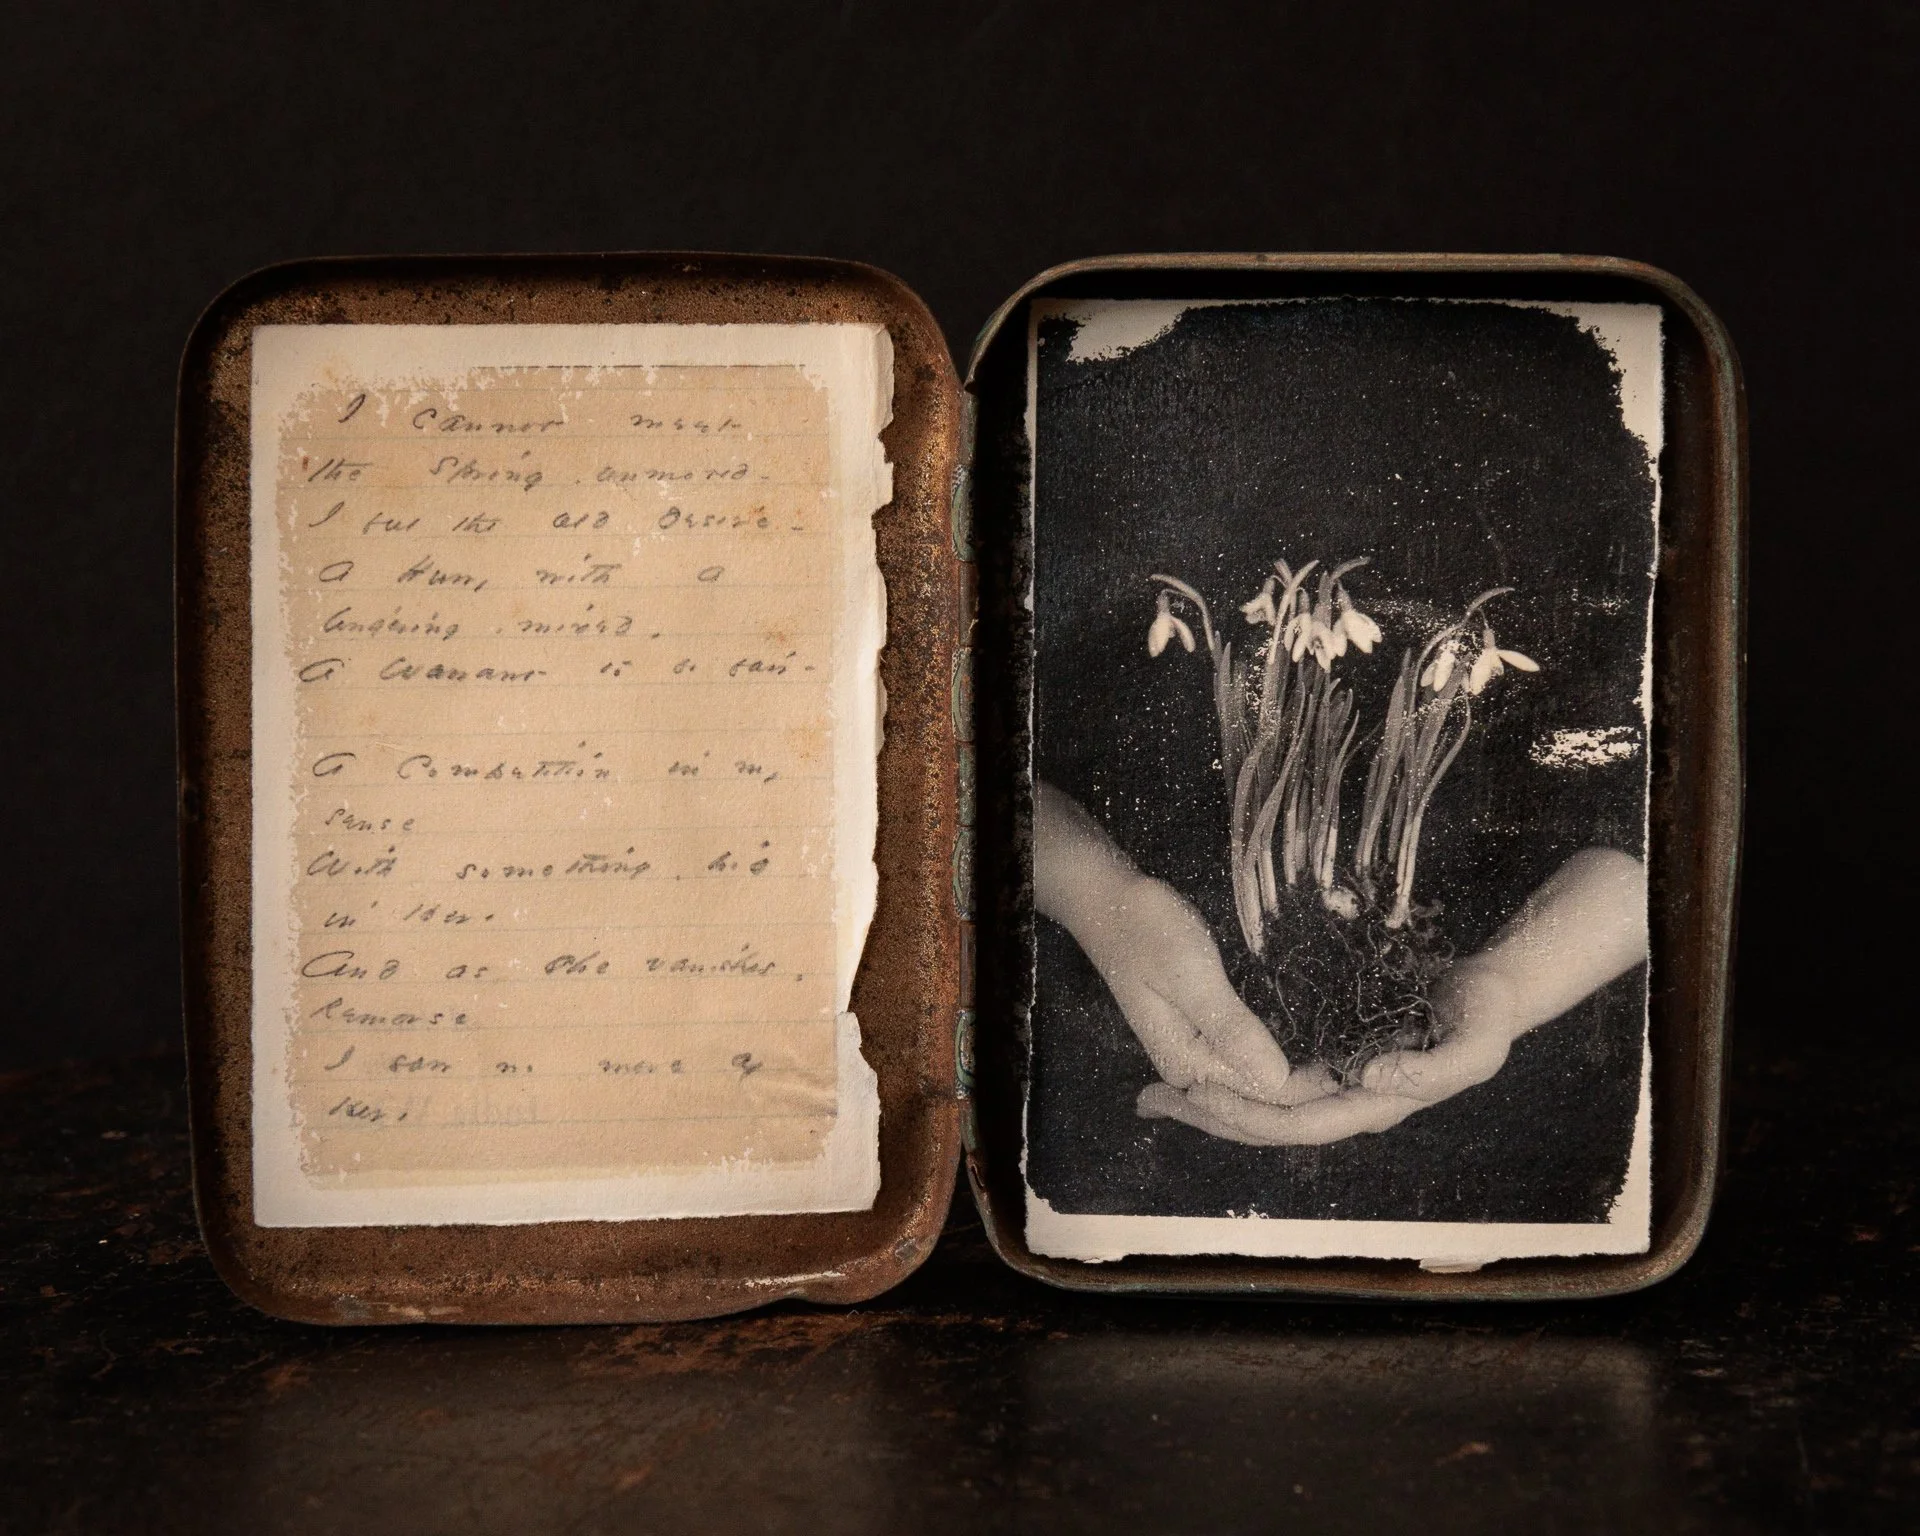 I cannot meet
the Spring unmoved -
I feel the old desire -
A Hurry with a
lingering, mixed,
A Warrant to be fair -
A Competition in my
sense
With something hid
in Her.
And as she vanishes,
Remorse
I saw no more of
Her.